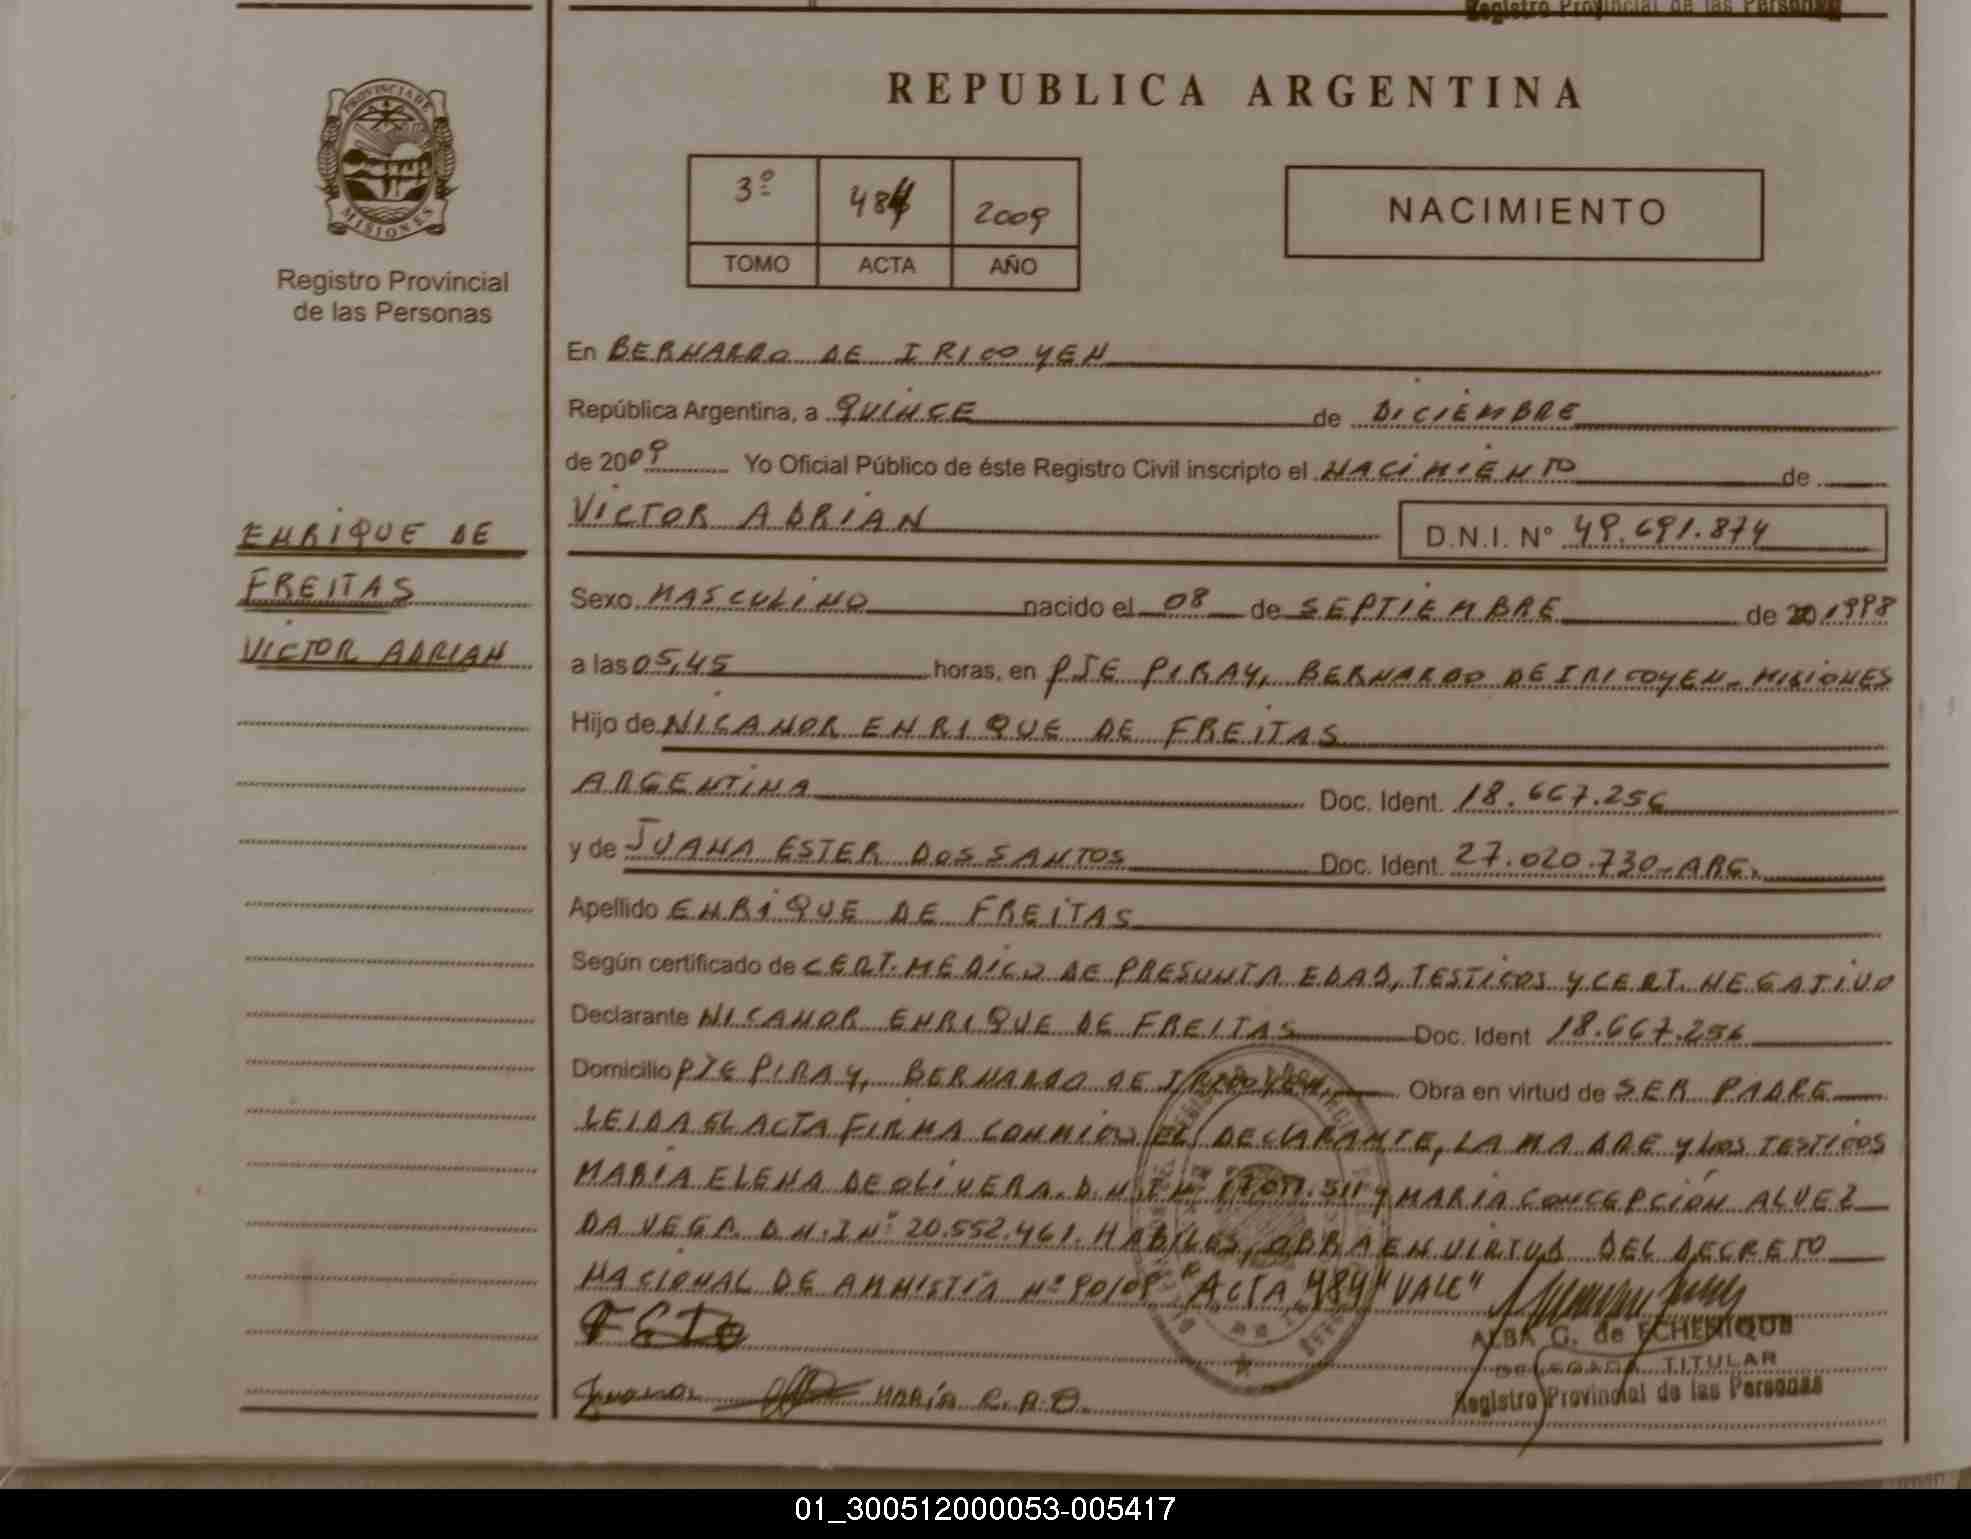 Registro Provincial de las Personas
REPUBLICA ARGENTINA
PROVINCIA DE
MISIONES
Registro Provincial
de las Personas
3º 484 2009
TOMO ACTA AÑO
NACIMIENTO
En BERNARDO DE IRIGOYEN
República Argentina, a QUINCE de DICIEMBRE
de 2009 Yo Oficial Público de éste Registro Civil inscripto el NACIMIENTO de
VICTOR ADRIAN
D.N.I. Nº 49.691.874
ENRIQUE DE
FREITAS
VICTOR ADRIAN
Sexo MASCULINO nacido el 08 de SEPTIEMBRE de 20 1998
a las 05,45 horas, en PJE PIRAY, BERNARDO DE IRIGOYEN - MISIONES
Hijo de NICANOR ENRIQUE DE FREITAS
ARGENTINA Doc. Ident. 18.667.256
y de JUANA ESTER DOS SANTOS Doc. Ident. 27.020.730-ARG.
Apellido ENRIQUE DE FREITAS
Según certificado de CERT. MEDICO DE PRESUNTA EDAD, TESTIGOS Y CERT. NEGATIVO
Declarante NICANOR ENRIQUE DE FREITAS Doc. Ident 18.667.256
Domicilio PJE PIRAY, BERNARDO DE IRIGOYEN, Obra en virtud de SER PADRE
LEIDA EL ACTA FIRMA CONMIGO EL DECLARANTE, LA MADRE Y LOS TESTIGOS
MARÍA ELENA DE OLIVERA. D.N.I Nº Y MARIA CONCEPCIÓN ALVEZ
DA VEGA D.N.I Nº 20.552.461. HABILES, OBRA EN VIRTUD DEL DECRETO
NACIONAL DE AMNISTÍA Nº 90/09 "ACTA 484 "VALE"
ALBA G. de ECHENIQUE
DELEGADA TITULAR
Juana MARÍA C. A. D.
Registro Provincial de las Personas
01_300512000053-005417